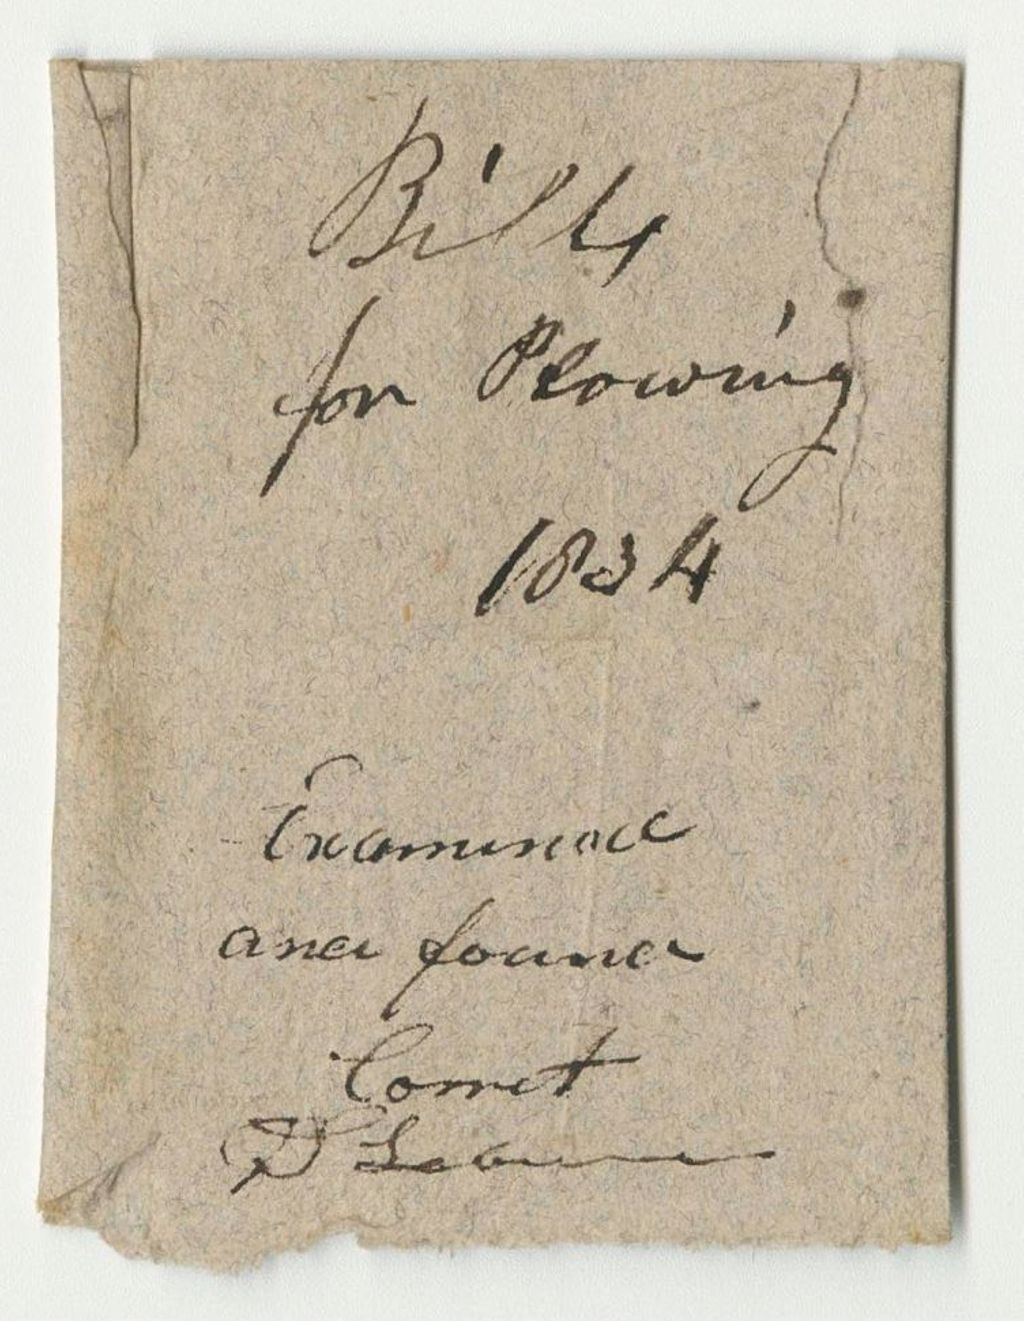 Bills
for Plowing
1834
Examined
and found
Correct